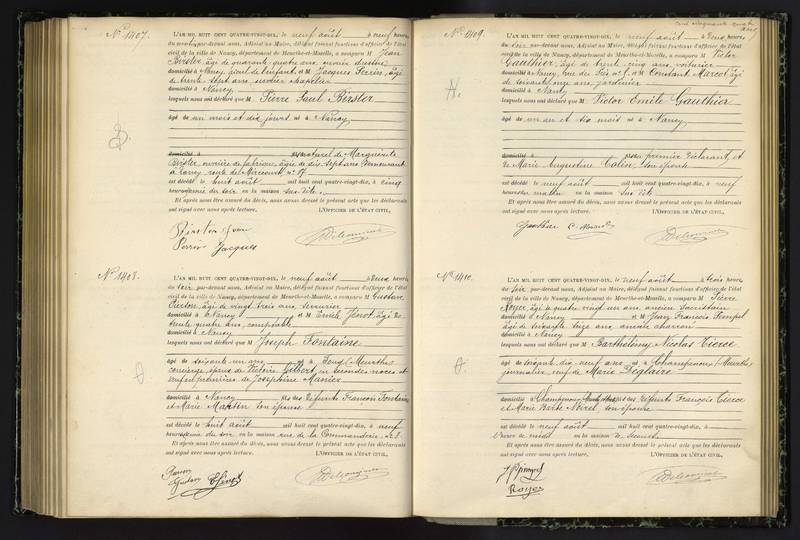 Nº 1407.
L'AN MIL HUIT CENT QUATRE-VINGT-DIX, le neuf août à neuf heures
du matin, par-devant nous, Adjoint au Maire, délégué faisant fonctions d'officier de l'état
civil de la ville de Nancy, département de Meurthe-et-Moselle, a comparu M Jean
Birster, âgé de quarante quatre ans,
domicilié à Nancy et M Jacques Perrin, âgé
de trente sept ans,
domicilié à Nancy
lesquels nous ont déclaré que M Pierre Paul Birster
âgé de un mois et dix jours né à Nancy
domicilié à naturel de Marguerite
Birster, ouvrière de fabrique, âgée de dix sept ans demeurant
à Nancy, rue de Mirecourt, nº 57
est décédé le huit août mil huit cent quatre-vingt-dix, à cinq
heures du soir en la maison sus dite.
Et après nous être assuré du décès, nous avons dressé le présent acte que les déclarants
ont signé avec nous après lecture. L'OFFICIER DE L'ÉTAT CIVIL,
Perrin Jacques
Nº 1408.
L'AN MIL HUIT CENT QUATRE-VINGT-DIX, le neuf août à deux heures
du soir, par-devant nous, Adjoint au Maire, délégué faisant fonctions d'officier de l'état
civil de la ville de Nancy, département de Meurthe-et-Moselle, a comparu M Gustave
âgé de vingt trois ans, serrurier
domicilié à Nancy et M Emile Génot, âgé de
trente quatre ans, comptable
domicilié à Nancy
lesquels nous ont déclaré que M Joseph Fontaine
âgé de soixante un ans né à Toul (Meurthe)
concierge, époux de Victoire Gilbert, en secondes noces et
veuf en premières de Joséphine Manier
domicilié à Nancy fils des défunts François Fontaine
et Marie Martin son épouse
est décédé le huit août mil huit cent quatre-vingt-dix, à neuf
heures du soir en la maison rue de la Commanderie, 28
Et après nous être assuré du décès, nous avons dressé le présent acte que les déclarants
ont signé avec nous après lecture. L'OFFICIER DE L'ÉTAT CIVIL,
Gustave EGénot
cent cinquante quatre
Nº 1409.
L'AN MIL HUIT CENT QUATRE-VINGT-DIX, le neuf août à deux heures
du soir, par-devant nous, Adjoint au Maire, délégué faisant fonctions d'officier de l'état
civil de la ville de Nancy, département de Meurthe-et-Moselle, a comparu M Victor
Gauthier, âgé de trente cinq ans, voiturier
domicilié à Nancy, et M Constant Marcot, âgé
de soixante onze ans, jardinier
domicilié à Nancy
lesquels nous ont déclaré que M Victor Emile Gauthier
âgé de un an et six mois né à Nancy
domicilié à fils du premier déclarant, et
de Marie Augustine Colin, son épouse
est décédé le neuf août mil huit cent quatre-vingt-dix, à neuf
heures du matin en la maison sus dite
Et après nous être assuré du décès, nous avons dressé le présent acte que les déclarants
ont signé avec nous après lecture. L'OFFICIER DE L'ÉTAT CIVIL,
Gauthier
Nº 1410.
L'AN MIL HUIT CENT QUATRE-VINGT-DIX, le neuf août à trois heures
du soir, par-devant nous, Adjoint au Maire, délégué faisant fonctions d'officier de l'état
civil de la ville de Nancy, département de Meurthe-et-Moselle, a comparu M Pierre
Royer, âgé de quatre vingt un ans, ancien sacristain
domicilié à Nancy et M Jean François
âgé de soixante ans, ancien charron
domicilié à Nancy
lesquels nous ont déclaré que M Barthélemy Nicolas Tierce
âgé de soixante dix neuf ans né à Champenoux (Meurthe)
journalier, veuf de Marie Deglaire
domicilié à Champenoux fils des défunts François Tierce
et Marie Barbe son épouse
est décédé le neuf août mil huit cent quatre-vingt-dix, à
l'heure de midi en la maison de secours
Et après nous être assuré du décès, nous avons dressé le présent acte que les déclarants
ont signé avec nous après lecture. L'OFFICIER DE L'ÉTAT CIVIL,
Royer